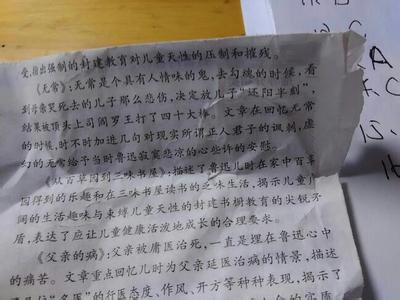 受,指出强制的封建教育对儿童天性的压制和摧残。
《无常》:无常是个具有人情味的鬼,去勾魂的时候,看
到母亲哭死去的儿子那么悲伤,决定放儿子“还阳半刻”,
结果被顶头上司阎罗王打了四十大棒。文章在回忆无常
的时候,时不时加进几句对现实所谓正人君子的讽刺,虚
幻的无常给予当时鲁迅寂寞悲凉的心些许的安慰。
《从百草园到三味书屋》:描述了鲁迅儿时在家中百草
园得到的乐趣和在三味书屋读书的乏味生活,揭示儿童广
阔的生活趣味与束缚儿童天性的封建书塾教育的尖锐矛
盾,表达了应让儿童健康活泼地成长的合理要求。
《父亲的病》:父亲被庸医治死,一直是埋在鲁迅心中
的痛苦。文章重点回忆儿时为父亲延医治病的情景,描述
了几位“名医”的行医态度、作风、开方等种种表现,揭示了
A
C
15.